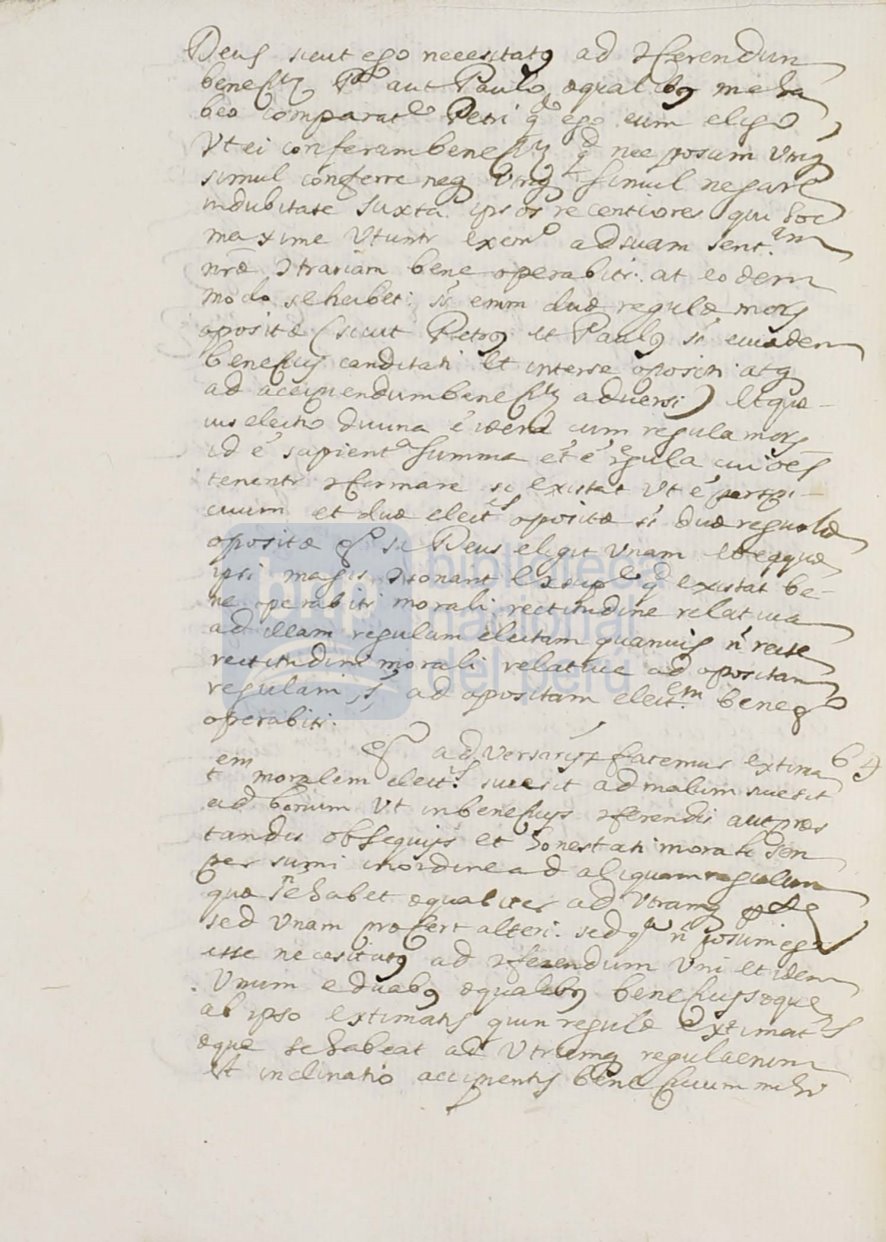 Deus sicut ego necesitatꝰ ad ɔferendum
benefm Po aut Paulo, æqualibꝰ me ha
beo comparate Petri qd ego eum eligo
Vt ei conferam benefm qd nec posum Vtriq
simul conferre neq Vtriq simul negare
indubitate Juxta ipsos recentiores qui hoc
maxime Vtuntr exemo ad suam sentam
nræ ɔtrariam bene operabitr. at eodem
modo se habet: st enim duæ regulæ mors
opositæ (sicut Petrꝰ et Paulꝰ st eiusdem
beneficij canditati et inter se opositi atq
ad accipiendum benefm adversi) et quæ-
uis electio divina é idem cum regula mors
id é sapienta summa et é regula cui oes
tenentr ɔformare si existat Vt é perspi-
cuum et duæ elects opositæ st duæ regulæ
opositæ ergo si Deus eligit Vnam
ipsi magis ɔsonant qd existat be-
ne operabitr morali rectitudine relativa
ad illam regulam electam quamvis n recte
rectitudine morali relative ad opositam
regulam, st ad opositam electm bene
operabitr.
adversarijs fatemur extima 64
em
t moralem elects sive sit ad malum sive sit
ad bonum Vt in beneficijs ɔferendis aut præs
tandis obsequijs et honestati morali sem
per sumi in ordine ad aliquam regulam
quæ n se habet æqualiter ad Vtramq
sed Vnam profert alteri. sed qd n posum ego
esse necesitatꝰ ad ɔferendum Vni et idem
Vnum e duabꝰ æqualibꝰ beneficijs æque
ab ipso extimatis quin regulæ extimats
æque se habeat ad Vtrumq regula enim
et inclinatio accipientis beneficium mihi
biblioteca
nacional
del perú